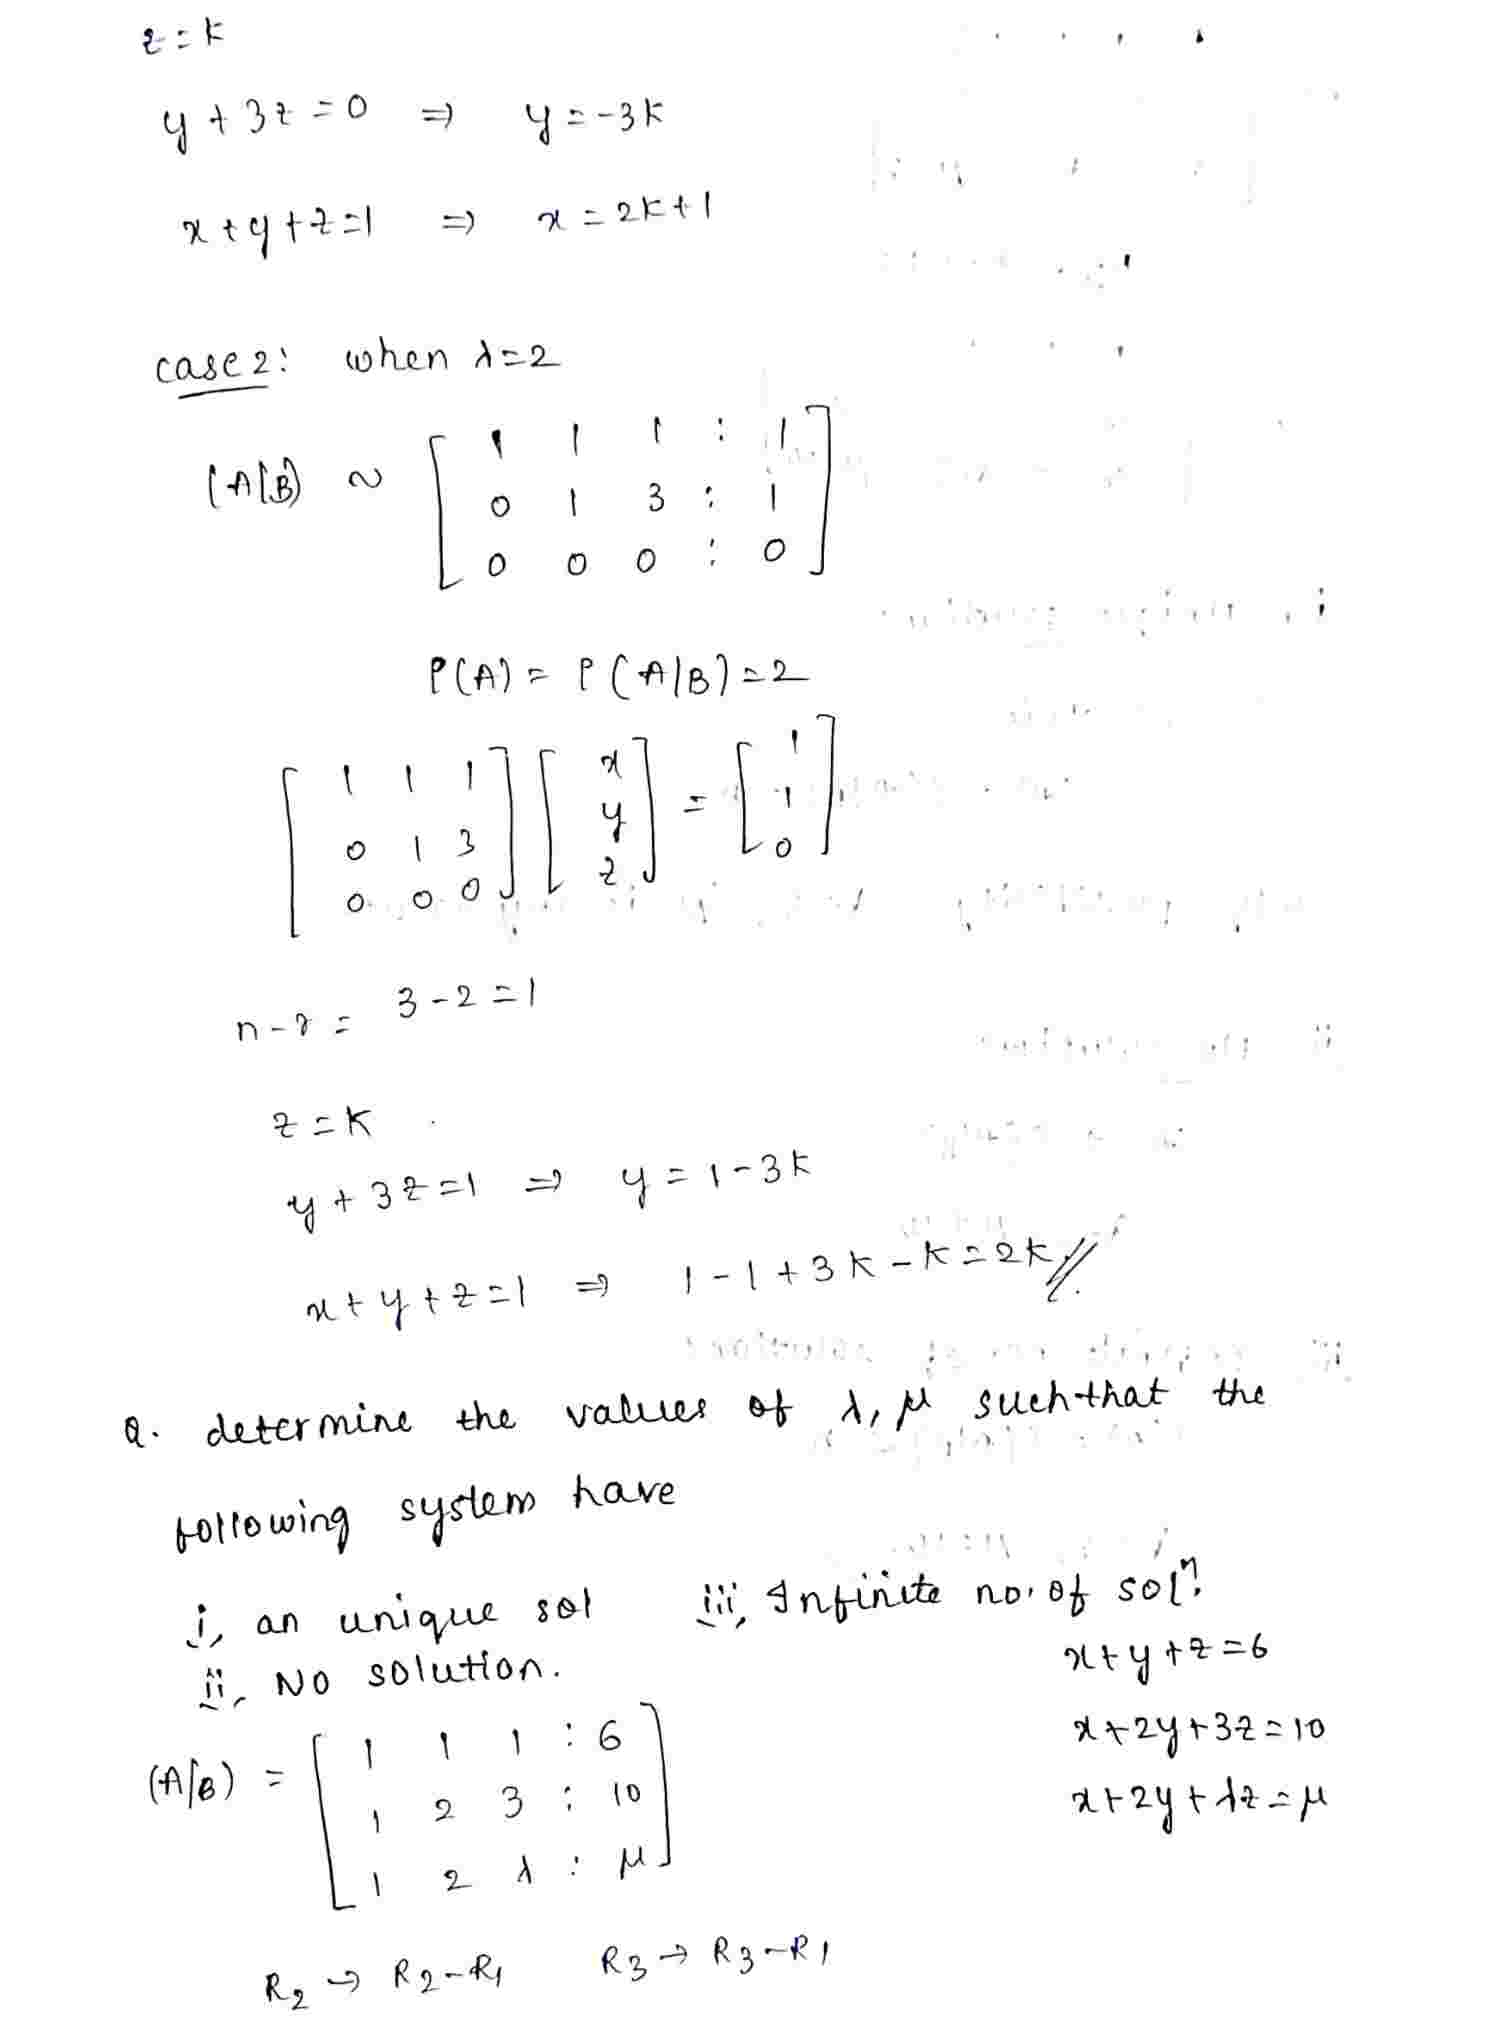 z=k
y+3z=0 ⇒ y=-3k
x+y+z=1 ⇒ x=2k+1
case 2: when λ=2
(A|B) ~ [ 1 1 1 : 1
0 1 3 : 1
0 0 0 : 0 ]
P(A) = P(A|B)=2
[ 1 1 1
0 1 3
0 0 0 ] [ x
y
z ] = [ 1
1
0 ]
n-r = 3-2=1
z=k
y+3z=1 ⇒ y=1-3k
x+y+z=1 ⇒ 1-1+3k-k=2k//.
Q. determine the values of λ, μ such that the
following system have
i, an unique sol iii, Infinite no. of solⁿ.
ii, No solution.
x+y+z=6
x+2y+3z=10
x+2y+λz=μ
(A|B) = [ 1 1 1 : 6
1 2 3 : 10
1 2 λ : μ ]
R2 → R2-R1 R3 → R3-R1